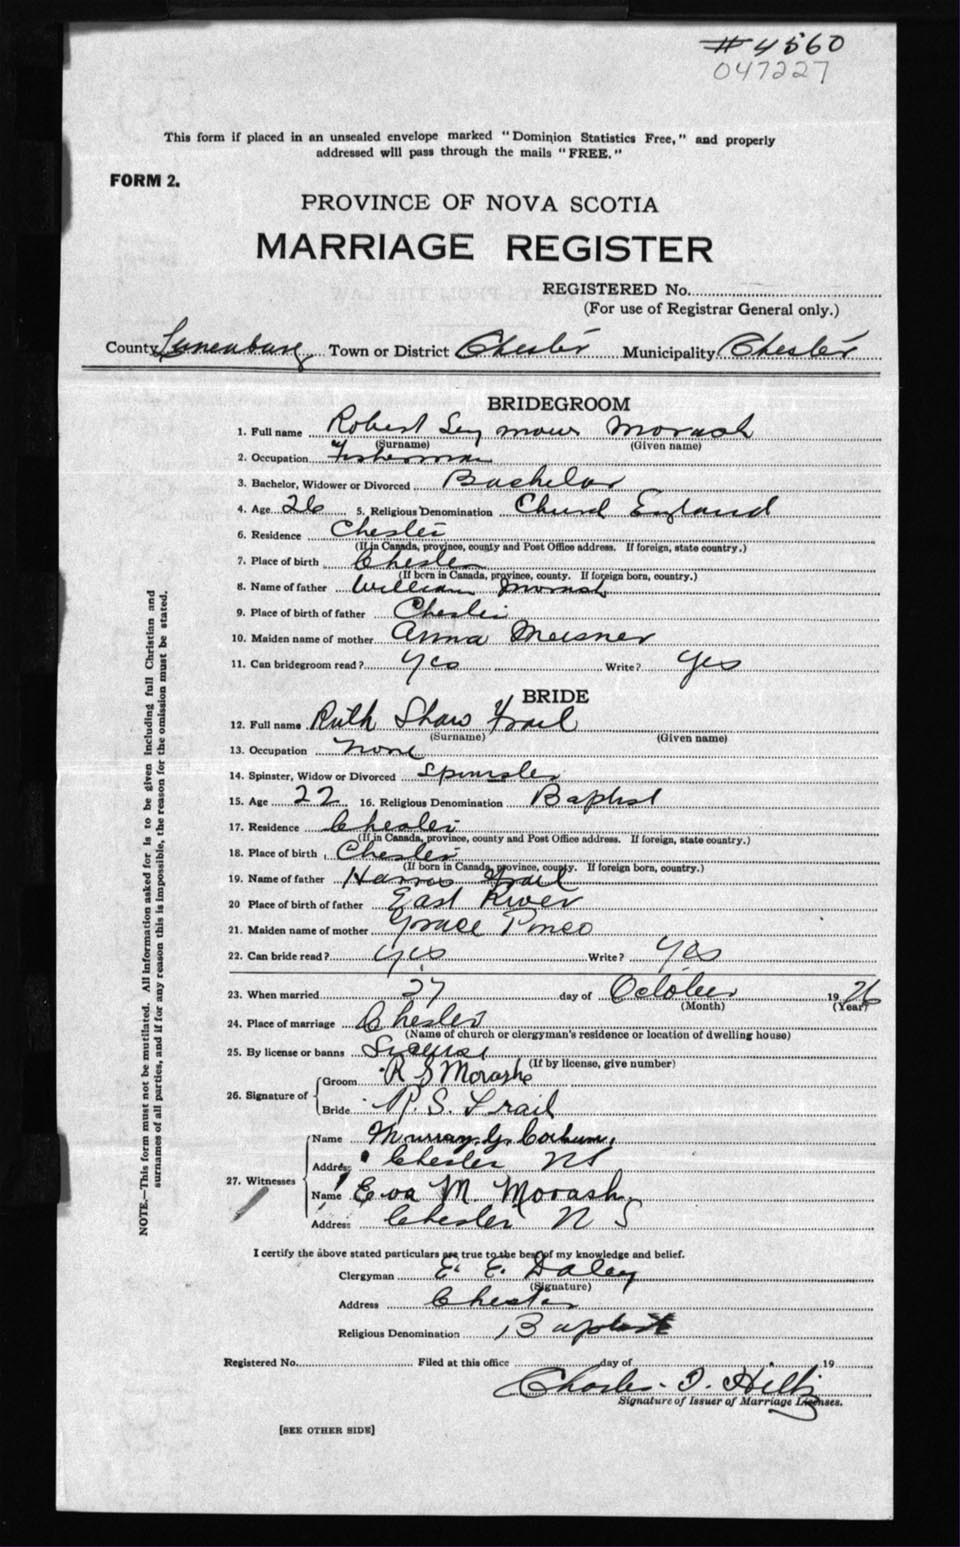 #4560
047227
This form if placed in an unsealed envelope marked "Dominion Statistics Free," and properly
addressed will pass through the mails "FREE."
FORM 2.
PROVINCE OF NOVA SCOTIA
MARRIAGE REGISTER
REGISTERED No.
(For use of Registrar General only.)
County Lunenburg Town or District Chester Municipality Chester
BRIDEGROOM
1. Full name Robert Seymour Morash
(Surname) (Given name)
2. Occupation Fisherman
3. Bachelor, Widower or Divorced Bachelor
4. Age 26 5. Religious Denomination Church England
6. Residence Chester
(If in Canada, province, county and Post Office address. If foreign, state country.)
7. Place of birth Chester
(If born in Canada, province, county. If foreign born, country.)
8. Name of father William Morash
9. Place of birth of father Chester
10. Maiden name of mother Anna Meisner
11. Can bridegroom read? Yes Write? Yes
BRIDE
12. Full name Ruth Shaw Frail
(Surname) (Given name)
13. Occupation None
14. Spinster, Widow or Divorced Spinster
15. Age 22 16. Religious Denomination Baptist
17. Residence Chester
(If in Canada, province, county and Post Office address. If foreign, state country.)
18. Place of birth Chester
(If born in Canada, province, county. If foreign born, country.)
19. Name of father Harris Frail
20 Place of birth of father East River
21. Maiden name of mother Grace Pineo
22. Can bride read? Yes Write? Yes
23. When married 27 day of October 1926
(Month) (Year)
24. Place of marriage Chester
(Name of church or clergyman's residence or location of dwelling house)
25. By license or banns License
(If by license, give number)
26. Signature of
Groom R S Morash
Bride R. S. Frail
27. Witnesses
Name Murray G.
Address Chester NS
Name Eva M. Morash
Address Chester N S
I certify the above stated particulars are true to the best of my knowledge and belief.
Clergyman E. E. Daley
(Signature)
Address Chester
Religious Denomination Baptist
Registered No. Filed at this office day of 19
Charles
Signature of Issuer of Marriage Licenses.
[SEE OTHER SIDE]
NOTE.—This form must not be mutilated. All information asked for is to be given including full Christian and
surnames of all parties, and if for any reason this is impossible, the reason for the omission must be stated.